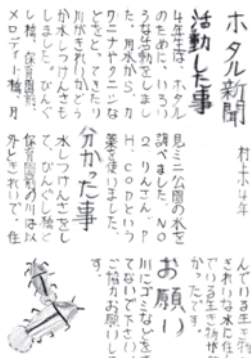 ホタル新聞
村上小4年
活動した事
4年生は、ホタル
のために、いろい
ろな活動をしまし
た。用水から、カ
ワニナやクニンな
どをとってきたり
川がきれいかどう
か水しつけんさも
しました。びんぐ
し橋、保育園前、
メロディー橋、月
見ミニ公園の水を
調べました。NO
2、りんさん、P
H、CODという
薬を使いました。
分かった事
水しつけんさをし
て、びんぐし橋と
保育園前の川は以
外ときれいで、住
んでいる生き物が
きれいな水に住ん
でいる生き物が
かったです。
お願い
川にゴミなどをす
てないで下さい。
ご協力お願いしま
す。